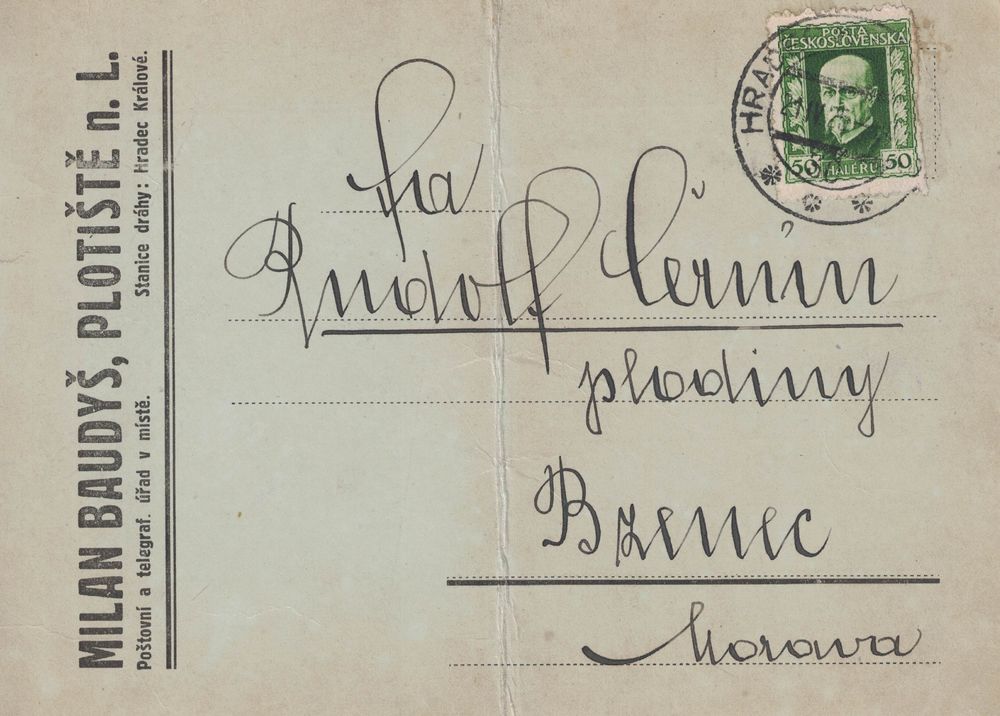 MILAN BAUDYŠ, PLOTIŠTĚ n. L.
Poštovní a telegraf. úřad v místě. Stanice dráhy: Hradec Králové.
POŠTA
ČESKOSLOVENSKÁ
50 HALÉŘŮ 50
HRAD
Fa
Rudolf Černín
plodiny
Bzenec
Morava